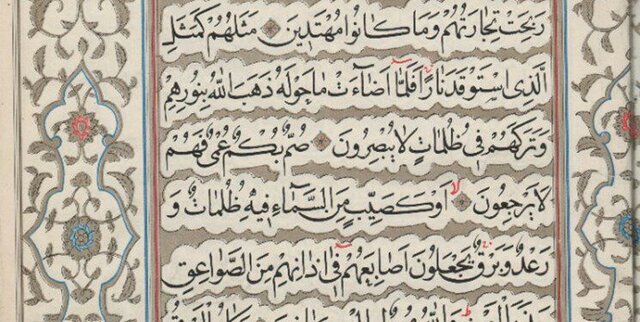 رَبِحَتْ تِجَارَتُهُمْ وَمَا كَانُوا مُهْتَدِينَ مَثَلُهُمْ كَمَثَلِ
الَّذِي اسْتَوْقَدَ نَارًا فَلَمَّا أَضَاءَتْ مَا حَوْلَهُ ذَهَبَ اللّٰهُ بِنُورِهِمْ
وَتَرَكَهُمْ فِي ظُلُمَاتٍ لَا يُبْصِرُونَ صُمٌّ بُكْمٌ عُمْيٌ فَهُمْ
لَا يَرْجِعُونَ لا أَوْ كَصَيِّبٍ مِنَ السَّمَاءِ فِيهِ ظُلُمَاتٌ وَ
رَعْدٌ وَبَرْقٌ يَجْعَلُونَ أَصَابِعَهُمْ فِي اٰذَانِهِمْ مِنَ الصَّوَاعِقِ